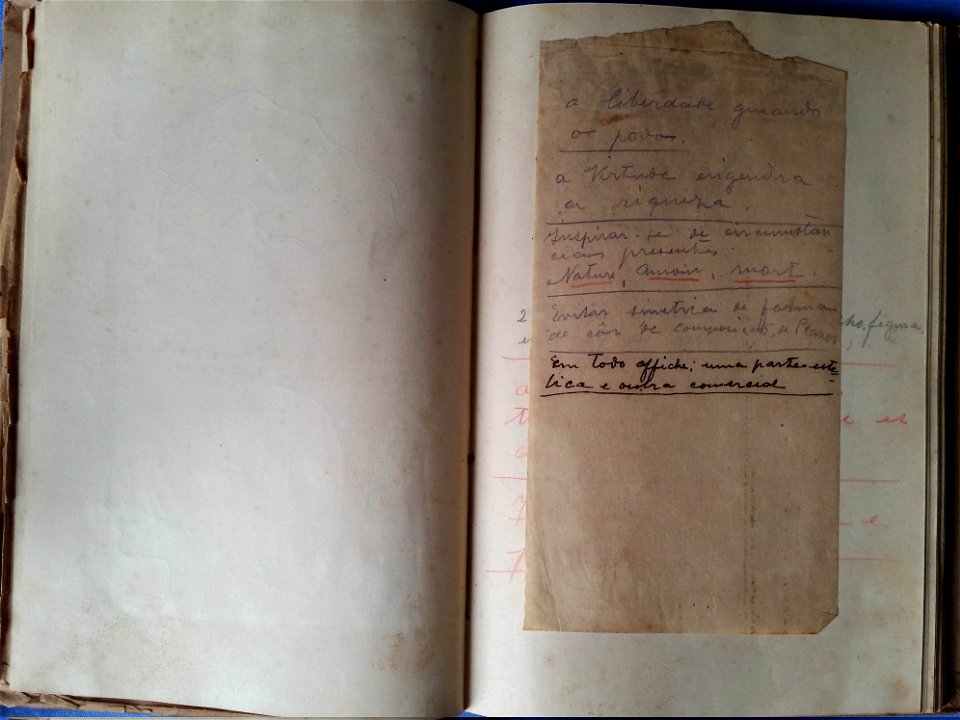 a liberdade guiando
o povo.
a Virtude engendra
a riqueza.
Inspirar-se de circumstan-
cias presentes
Nature, amour, mort.
Evitar simetria de forma
de côr de composição, de Planos
2
figura.
Em todo affiche; uma parte esté-
tica e outra comercial
a
e